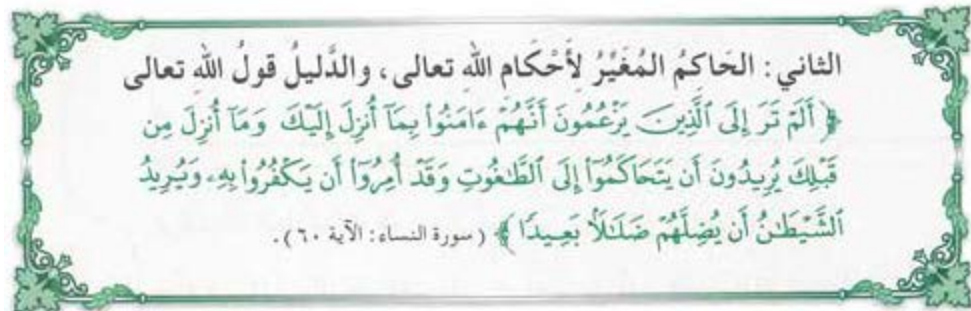 الثاني: الحَاكِمُ المُغَيِّرُ لِأَحْكَامِ اللهِ تعالى، والدَّليلُ قولُ اللهِ تعالى
﴿ أَلَمْ تَرَ إِلَى ٱلَّذِينَ يَزْعُمُونَ أَنَّهُمْ ءَامَنُوا۟ بِمَآ أُنزِلَ إِلَيْكَ وَمَآ أُنزِلَ مِن
قَبْلِكَ يُرِيدُونَ أَن يَتَحَاكَمُوٓا۟ إِلَى ٱلطَّـٰغُوتِ وَقَدْ أُمِرُوٓا۟ أَن يَكْفُرُوا۟ بِهِۦ وَيُرِيدُ
ٱلشَّيْطَـٰنُ أَن يُضِلَّهُمْ ضَلَـٰلًۢا بَعِيدًا ﴾ (سورة النساء: الآية ٦٠).